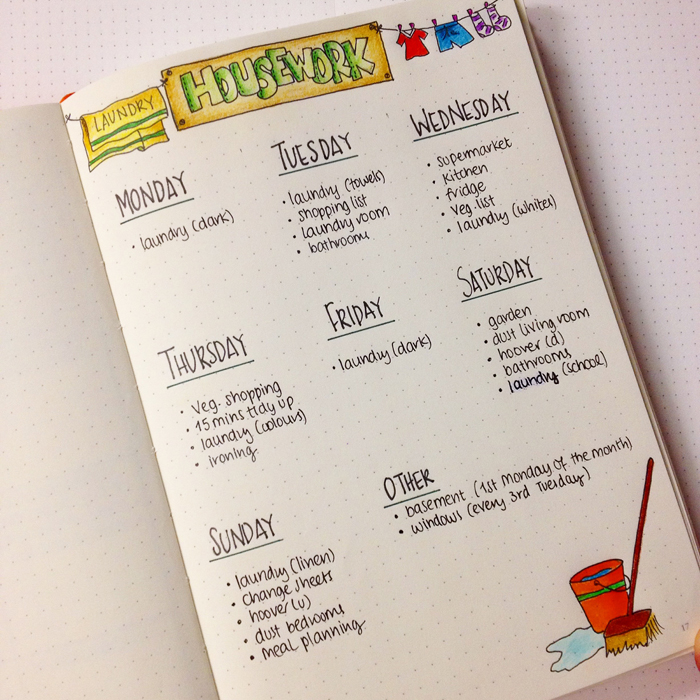 HOUSEWORK
LAUNDRY
MONDAY
• laundry (dark)
TUESDAY
• laundry (towels)
• shopping list
• laundry room
• bathrooms
WEDNESDAY
• supermarket
• kitchen
• fridge
• veg. list
• laundry (whites)
THURSDAY
• Veg. shopping
• 15 mins tidy up
• laundry (colours)
• ironing
FRIDAY
• laundry (dark)
SATURDAY
• garden
• dust living room
• hoover (d)
• bathrooms
• laundry (school)
SUNDAY
• laundry (linen)
• change sheets
• hoover (u)
• dust bedrooms
• meal planning
OTHER
• basement (1st Monday of the month)
• windows (every 3rd Tuesday)